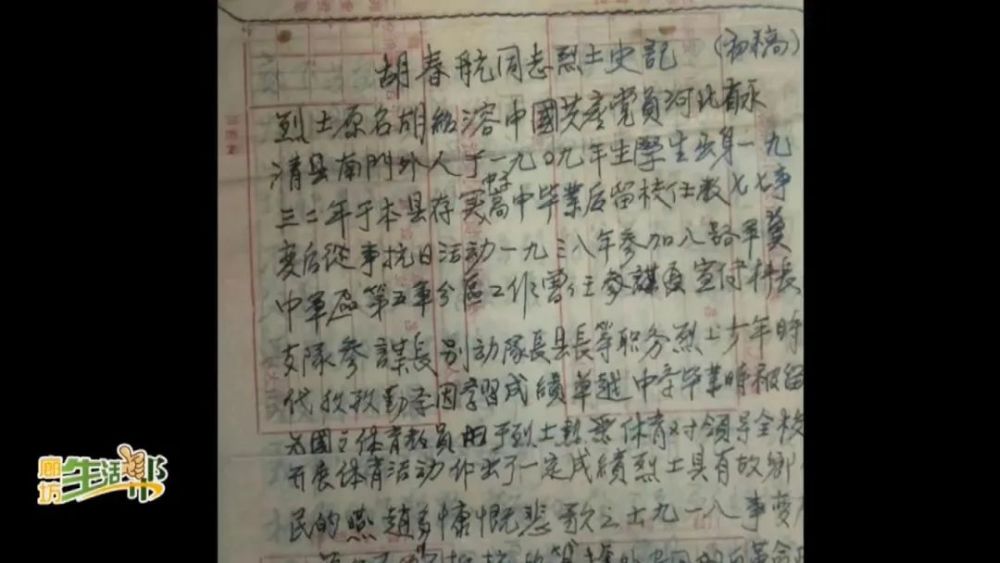 胡春航同志烈士史記 （初稿）
烈士原名胡紹溶中國共產党員河北省永
清县南門外人于一九〇九年生學生出身一九
三二年于本县存实中学高中毕業后留校任教七七事
变后從事抗日活动一九三八年参加八路軍冀
中軍區第五軍分區工作曾任参謀長宣付科長
支隊参謀長別动隊長县長等职务烈士少年時
代孜孜勤学因学習成績卓越中学毕業時被留
为國立体育教員由于烈士熱愛体育对領导全校
开展体育活动作出了一定成績烈士具有故鄉
民的燕趙多慷慨悲歌之士九一八事变
廊坊
生活帮